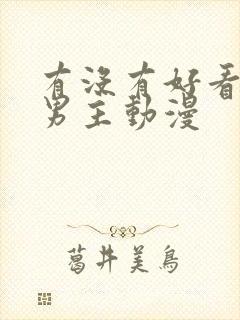 有没有好看
男主動漫
葛井美鳥